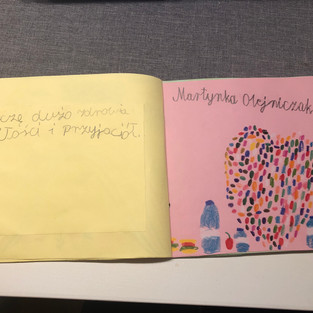 czę dużo zdrowia
łości i przyjaciół.
Martynka Olejniczak